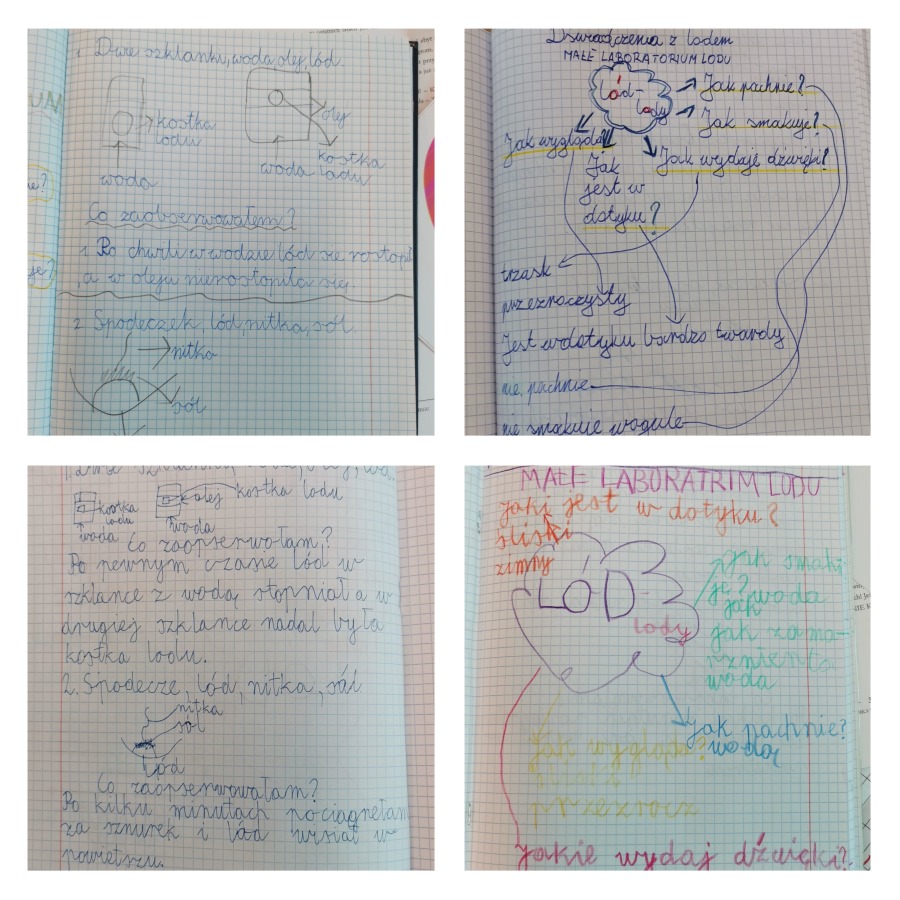 1. Dwie szklanki, woda olej, lód.
kostka
lodu
woda
olej
kostka
lodu
woda
Co zaobserwowałem?
1. Po chwili w wodzie lód się rostopił
, a w oleju
się.
2. Spodeczek, lód nitka, sól.
nitka
sól
Doświadczenia z lodem
MAŁE LABORATORIUM LODU
lód-
lody
Jak pachnie?
Jak smakuje?
Jak wygląda
Jak wydaję dźwięki?
Jak
jest w
dotyku?
trzask
przezroczysty
Jest wdotyku bardzo twardy
nie, pachnie
nie smakuje wogule
kostka
lodu
woda
olej
kostka lodu
woda
Co zaopserwołam?
Po pewnym czasie lód w
szklance z wodą stopniał a w
drugiej szklance nadal była
kostka lodu.
2. Spodecze, lód, nitka, sól
nitka
sól
lód
Co zaopserwowałam?
Po kilku minutach pociągnęłam
za sznurek i lód wisiał w
powietszu.
MAŁE LABORATRIM LODU
jaki jest w dotyku?
śliski
zimny
LÓD-
lody
jak smaku
je? woda
jak
jak zama-
rznienta
woda
jak pachnie?
wodą
jak wygląda?
przezrocz
jakie wydaj dźwięki?